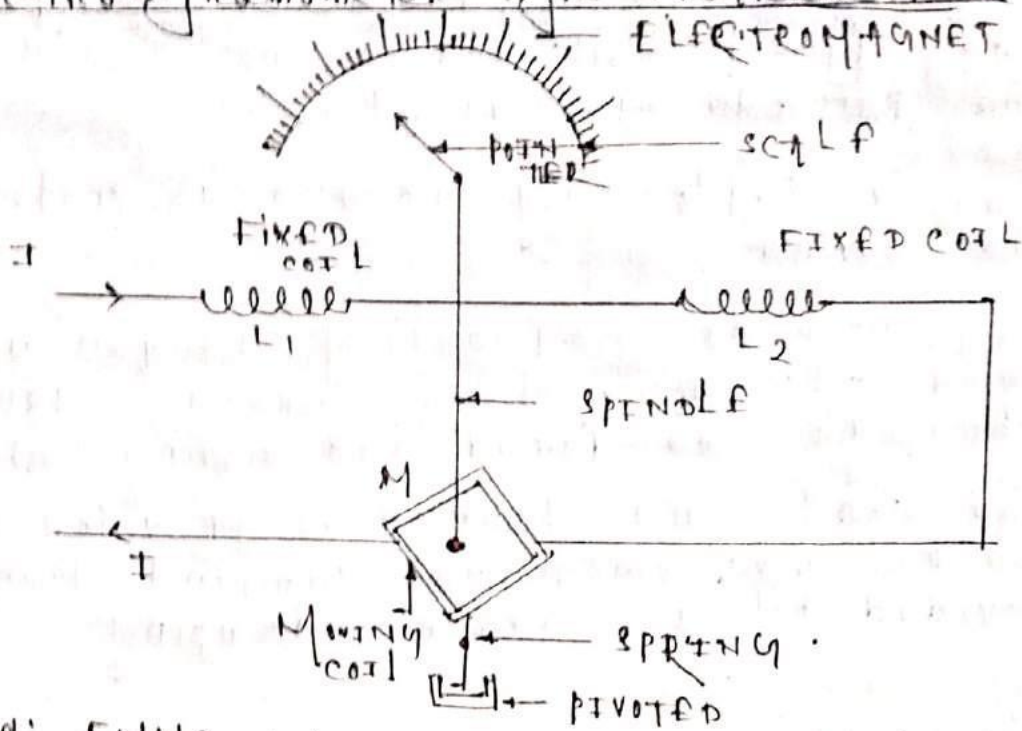 ELECTROMAGNET
SCALE
FIXED
COIL
FIXED COIL
I
L1
L2
SPINDLE
M
I
MOVING
COIL
SPRING
PIVOTED